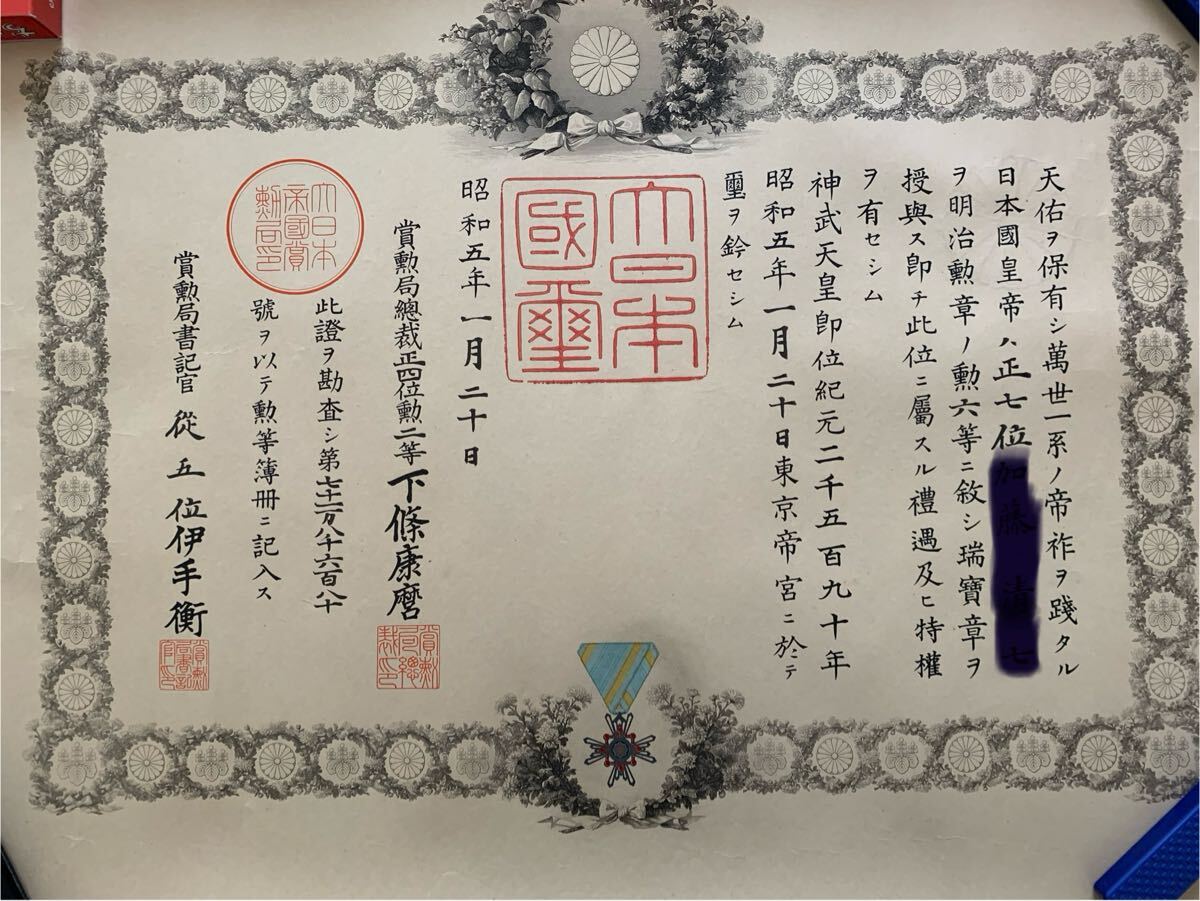 天佑ヲ保有シ萬世一系ノ帝祚ヲ踐タル
日本國皇帝ハ正七位
ヲ明治勲章ノ勲六等ニ敘シ瑞寶章ヲ
授與ス卽チ此位ニ屬スル禮遇及ヒ特權
ヲ有セシム
神武天皇卽位紀元二千五百九十年
昭和五年一月二十日東京帝宮ニ於テ
璽ヲ鈐セシム
大日本
國璽
昭和五年一月二十日
賞勲局總裁正四位勲二等下條康麿
賞勲
局總
裁印
此證ヲ勘査シ第七十二万八千六百八十
號ヲ以テ勲等簿冊ニ記入ス
大日本
帝國賞
勲局印
賞勲局書記官從五位伊手衡
賞勲
局書記
官印